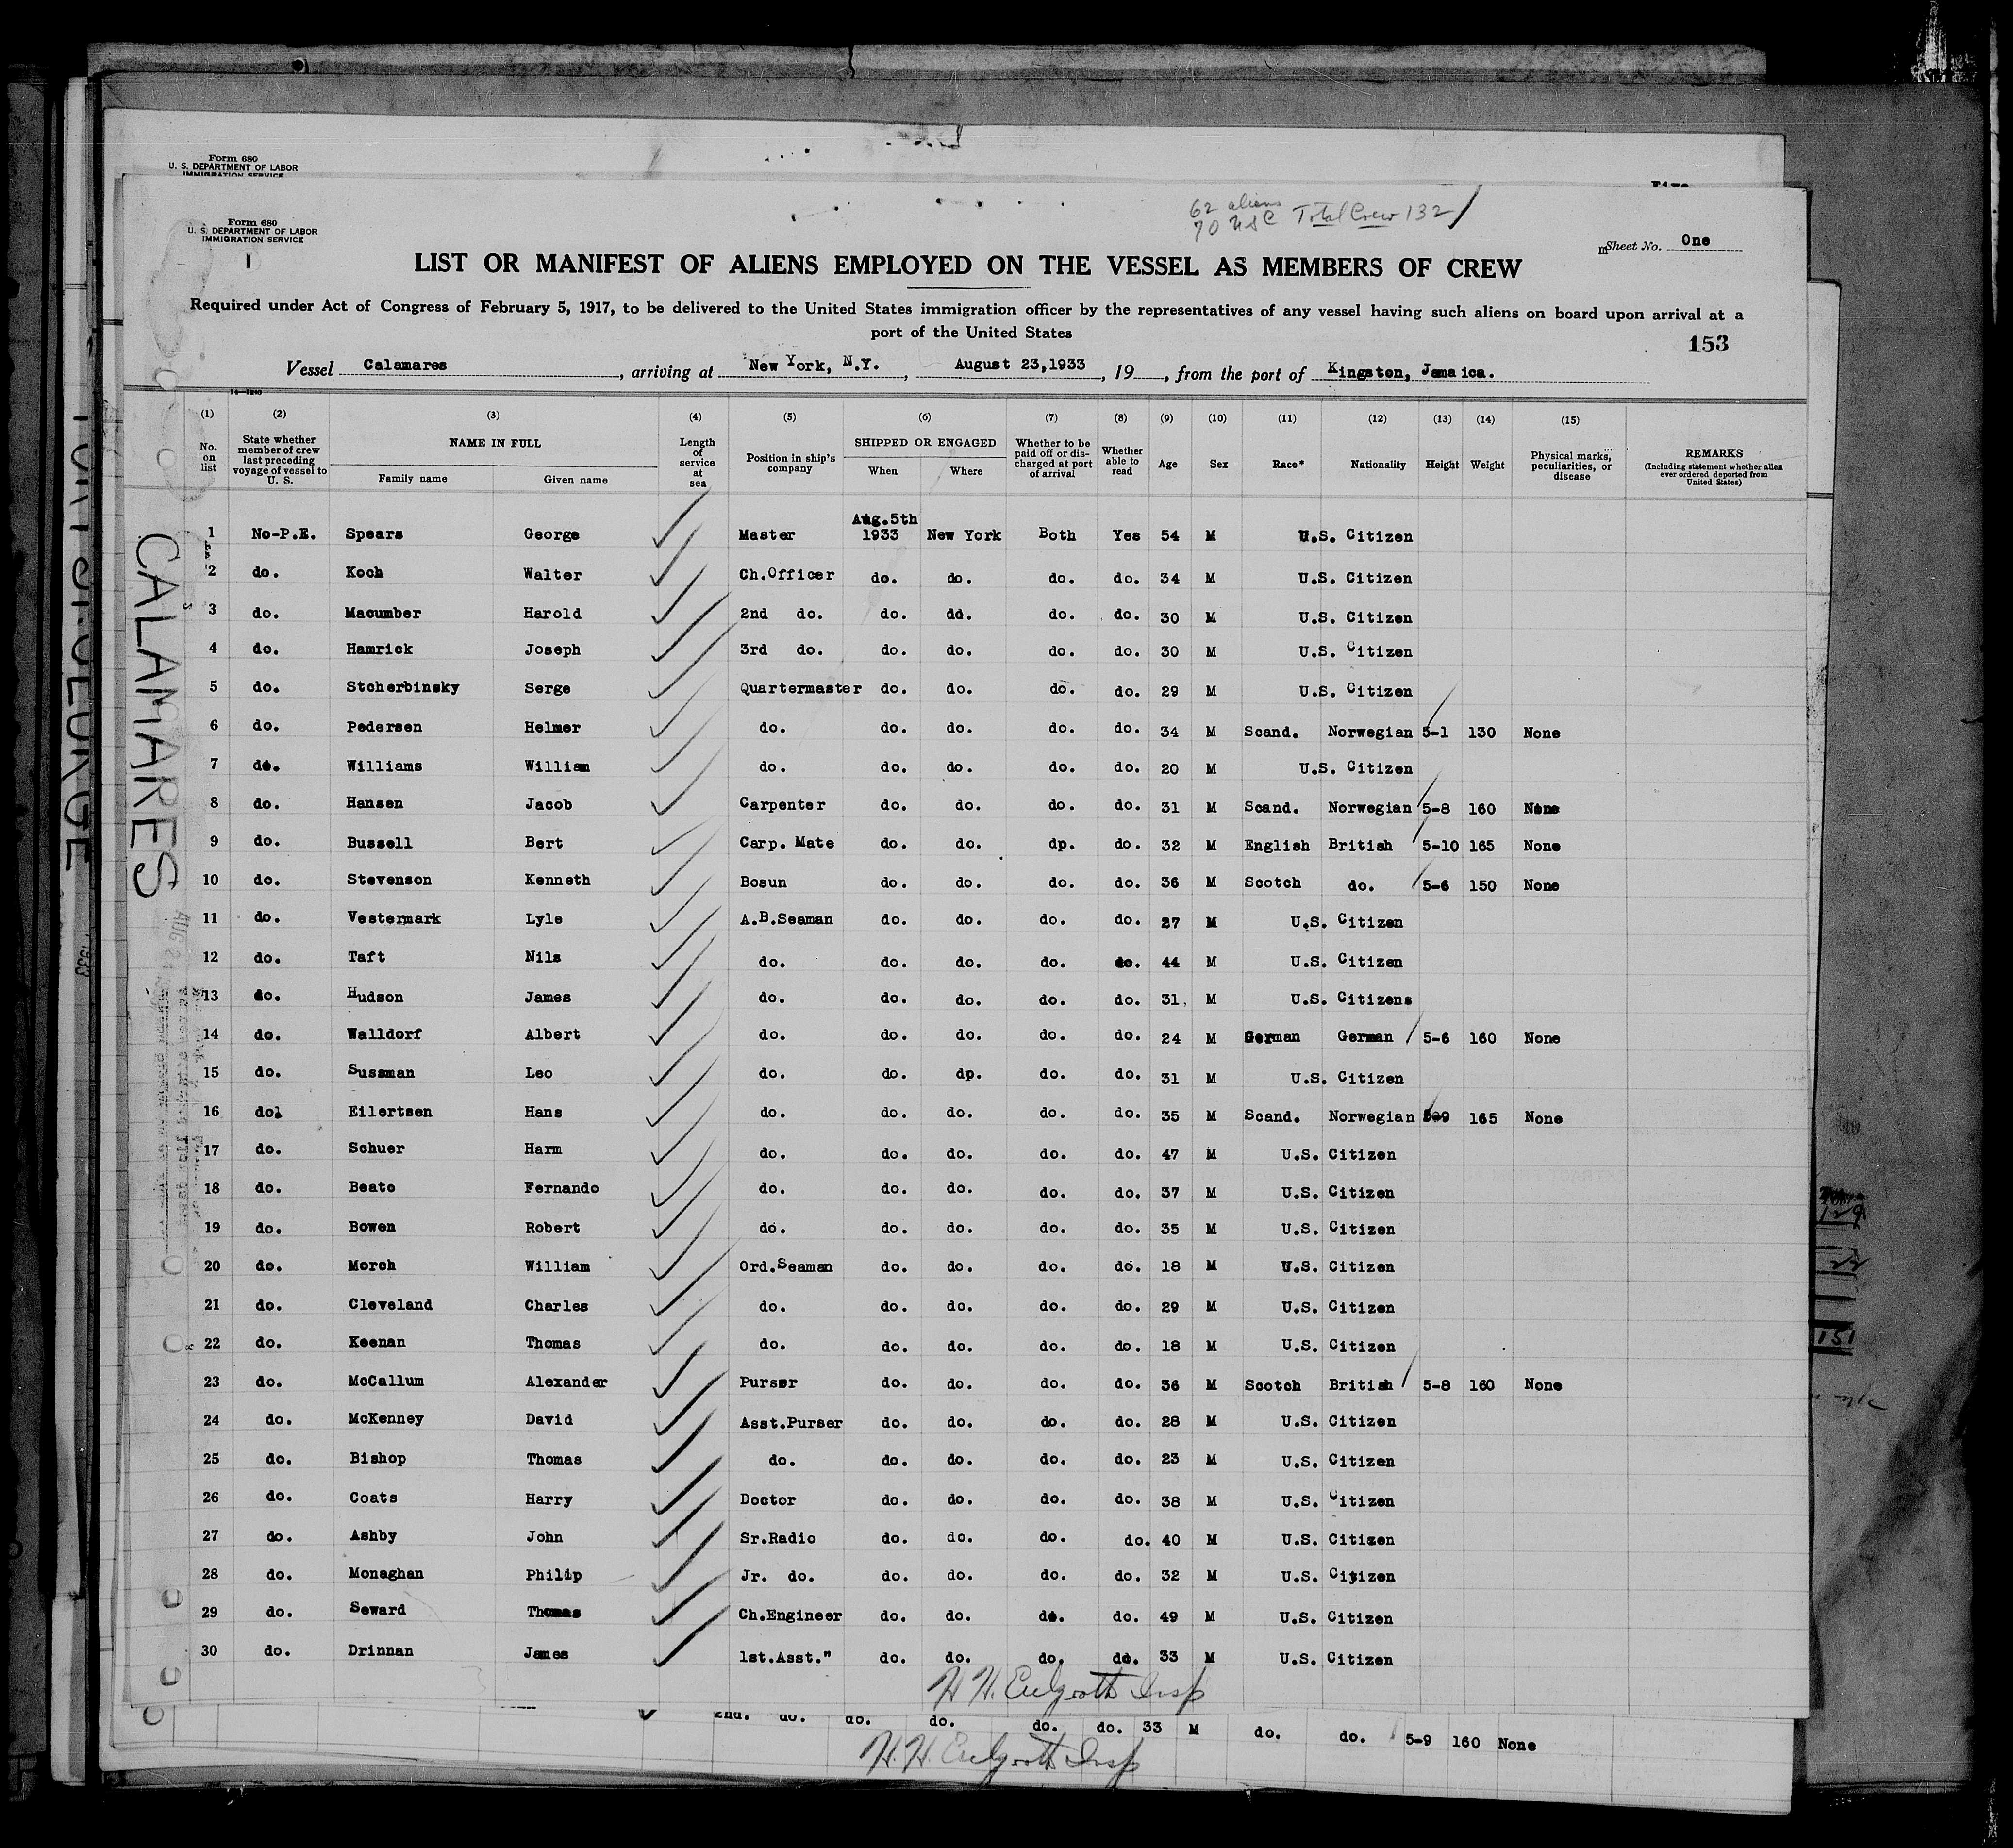 Form 680
U. S. DEPARTMENT OF LABOR
IMMIGRATION SERVICE
Form 680
U. S. DEPARTMENT OF LABOR
IMMIGRATION SERVICE
62 aliens
70 USC Total Crew 132
Sheet No. One
LIST OR MANIFEST OF ALIENS EMPLOYED ON THE VESSEL AS MEMBERS OF CREW
Required under Act of Congress of February 5, 1917, to be delivered to the United States immigration officer by the representatives of any vessel having such aliens on board upon arrival at a
port of the United States
153
Vessel Calamares, arriving at New York, N.Y., August 23,1933, 19, from the port of Kingston, Jamaica.
(1) (2) (3) (4) (5) (6) (7) (8) (9) (10) (11) (12) (13) (14) (15)
No. on list State whether member of crew last preceding voyage of vessel to U. S. NAME IN FULL Family name Given name Length of service at sea Position in ship's company SHIPPED OR ENGAGED When Where Whether to be paid off or discharged at port of arrival Whether able to read Age Sex Race* Nationality Height Weight Physical marks, peculiarities, or disease REMARKS (Including statement whether alien ever ordered deported from United States)
1 No-P.E. Spears George Master Aug.5th 1933 New York Both Yes 54 M U.S. Citizen
2 do. Koch Walter Ch.Officer do. do. do. do. 34 M U.S. Citizen
3 do. Macumber Harold 2nd do. do. dd. do. do. 30 M U.S. Citizen
4 do. Hamrick Joseph 3rd do. do. do. do. do. 30 M U.S. Citizen
5 do. Stcherbinsky Serge Quartermaster do. do. do. do. 29 M U.S. Citizen
6 do. Pedersen Helmer do. do. do. do. do. 34 M Scand. Norwegian 5-1 130 None
7 do. Williams William do. do. do. do. do. 20 M U.S. Citizen
8 do. Hansen Jacob Carpenter do. do. do. do. 31 M Scand. Norwegian 5-8 160 None
9 do. Bussell Bert Carp. Mate do. do. dp. do. 32 M English British 5-10 165 None
10 do. Stevenson Kenneth Bosun do. do. do. do. 36 M Scotch do. 5-6 150 None
11 do. Vestermark Lyle A.B.Seaman do. do. do. do. 27 M U.S. Citizen
12 do. Taft Nils do. do. do. do. do. 44 M U.S. Citizen
13 do. Hudson James do. do. do. do. do. 31 M U.S. Citizens
14 do. Walldorf Albert do. do. do. do. do. 24 M German German 5-6 160 None
15 do. Sussman Leo do. do. dp. do. do. 31 M U.S. Citizen
16 do. Eilertsen Hans do. do. do. do. do. 35 M Scand. Norwegian 5-9 165 None
17 do. Schuer Harm do. do. do. do. do. 47 M U.S. Citizen
18 do. Beato Fernando do. do. do. do. do. 37 M U.S. Citizen
19 do. Bowen Robert do. do. do. do. do. 35 M U.S. Citizen
20 do. Morch William Ord.Seaman do. do. do. do. 18 M U.S. Citizen
21 do. Cleveland Charles do. do. do. do. do. 29 M U.S. Citizen
22 do. Keenan Thomas do. do. do. do. do. 18 M U.S. Citizen
23 do. McCallum Alexander Purser do. do. do. do. 36 M Scotch British 5-8 160 None
24 do. McKenney David Asst.Purser do. do. do. do. 28 M U.S. Citizen
25 do. Bishop Thomas do. do. do. do. do. 23 M U.S. Citizen
26 do. Coats Harry Doctor do. do. do. do. 38 M U.S. Citizen
27 do. Ashby John Sr.Radio do. do. do. do. 40 M U.S. Citizen
28 do. Monaghan Philip Jr. do. do. do. do. do. 32 M U.S. Ciyizen
29 do. Seward Thomas Ch.Engineer do. do. do. do. 49 M U.S. Citizen
30 do. Drinnan James 1st.Asst." do. do. do. do. 33 M U.S. Citizen
H.H. Insp
2nd. do. do. do. do. do. 33 M do. do. 5-9 160 None
H.H. Insp
CALAMARES
151